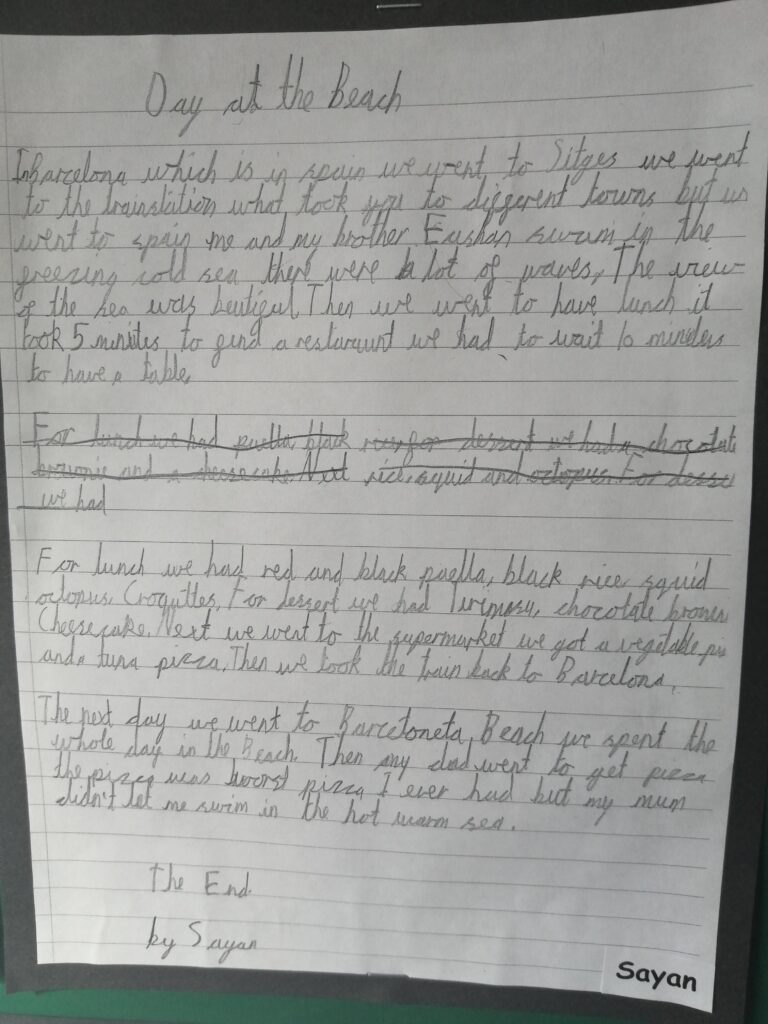 Day at the Beach
In Barcelona which is in spain we went to Sitges we went
to the trainstation what took you to different towns but us
went to spain me and my brother Eushan swum in the
freezing cold sea there were a lot of waves, The view
of the sea was beutiful, Then we went to have lunch it
took 5 minites to find a restaraunt we had to wait 10
to have a table,
For lunch we had paella, black for dessert we had a chocolate
brownie and a cheesecake. Next rice, squid and octopus. For desse
we had
For lunch we had red and black paella, black rice squid
octopus, Croquttes, For dessert we had Tirimasu, chocolate
Cheesecake. Next we went to the supermarket we got a vegetable
and a tuna pizza. Then we took the train back to Barcelona.
The next day we went to Barcetoneta Beach we spent the
whole day in the Beach. Then my dad went to get pizza
the pizza was worst pizza I ever had but my mum
didn't let me swim in the hot warm sea.
The End.
by Sayan
Sayan